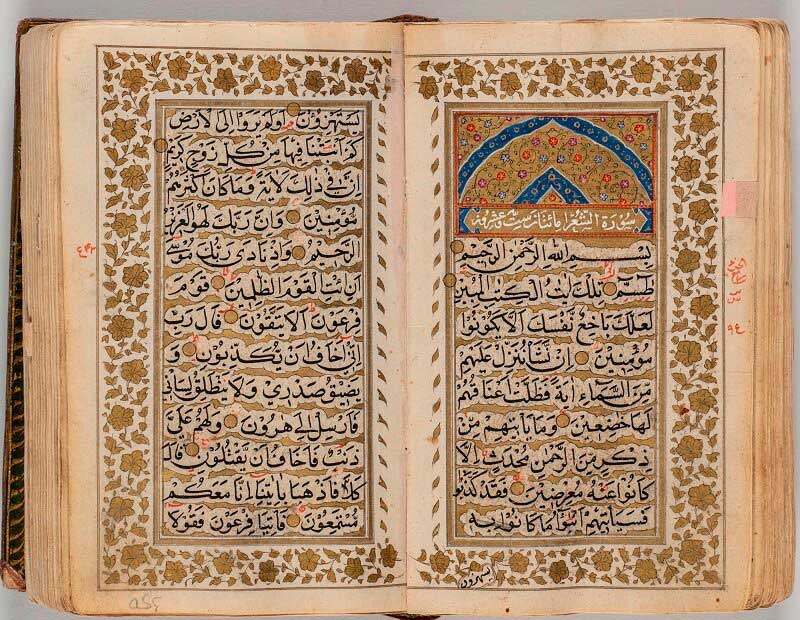 سورة الشعرا مائتان وست وعشرون
بِسْمِ اللهِ الرَّحْمٰنِ الرَّحِيْمِ
طٰسٓمّ تِلْكَ اٰيٰتُ الْكِتٰبِ الْمُبِيْنِ
لَعَلَّكَ بَاخِعٌ نَفْسَكَ اَلَّا يَكُوْنُوْا
مُؤْمِنِيْنَ اِنْ نَشَأْ نُنَزِّلْ عَلَيْهِمْ
مِنَ السَّمَآءِ اٰيَةً فَظَلَّتْ اَعْنَاقُهُمْ
لَهَا خٰضِعِيْنَ وَمَا يَأْتِيْهِمْ مِنْ
ذِكْرٍ مِنَ الرَّحْمٰنِ مُحْدَثٍ اِلَّا
كَانُوْا عَنْهُ مُعْرِضِيْنَ فَقَدْ كَذَّبُوْا
فَسَيَأْتِيْهِمْ اَنْبٰٓؤُا مَا كَانُوْا بِهٖ
٩٤
يَسْتَهْزِؤُنَ اَوَلَمْ يَرَوْا اِلَى الْاَرْضِ
كَمْ اَنْبَتْنَا فِيْهَا مِنْ كُلِّ زَوْجٍ كَرِيْمٍ
اِنَّ فِيْ ذٰلِكَ لَاٰيَةً وَمَا كَانَ اَكْثَرُهُمْ
مُؤْمِنِيْنَ وَاِنَّ رَبَّكَ لَهُوَ الْعَزِيْزُ
الرَّحِيْمُ وَاِذْ نَادٰى رَبُّكَ مُوْسٰٓى
اَنِ ائْتِ الْقَوْمَ الظّٰلِمِيْنَ قَوْمَ
فِرْعَوْنَ اَلَا يَتَّقُوْنَ قَالَ رَبِّ
اِنِّيْ اَخَافُ اَنْ يُكَذِّبُوْنِ وَ
يَضِيْقُ صَدْرِيْ وَلَا يَنْطَلِقُ لِسَانِيْ
فَاَرْسِلْ اِلٰى هٰرُوْنَ وَلَهُمْ عَلَيَّ
ذَنْبٌ فَاَخَافُ اَنْ يَقْتُلُوْنِ قَالَ
كَلَّا فَاذْهَبَا بِاٰيٰتِنَآ اِنَّا مَعَكُمْ
مُسْتَمِعُوْنَ فَأْتِيَا فِرْعَوْنَ فَقُوْلَآ